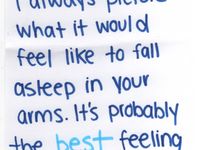 I always picture
what it would
feel like to fall
asleep in your
arms. It's probably
the best feeling